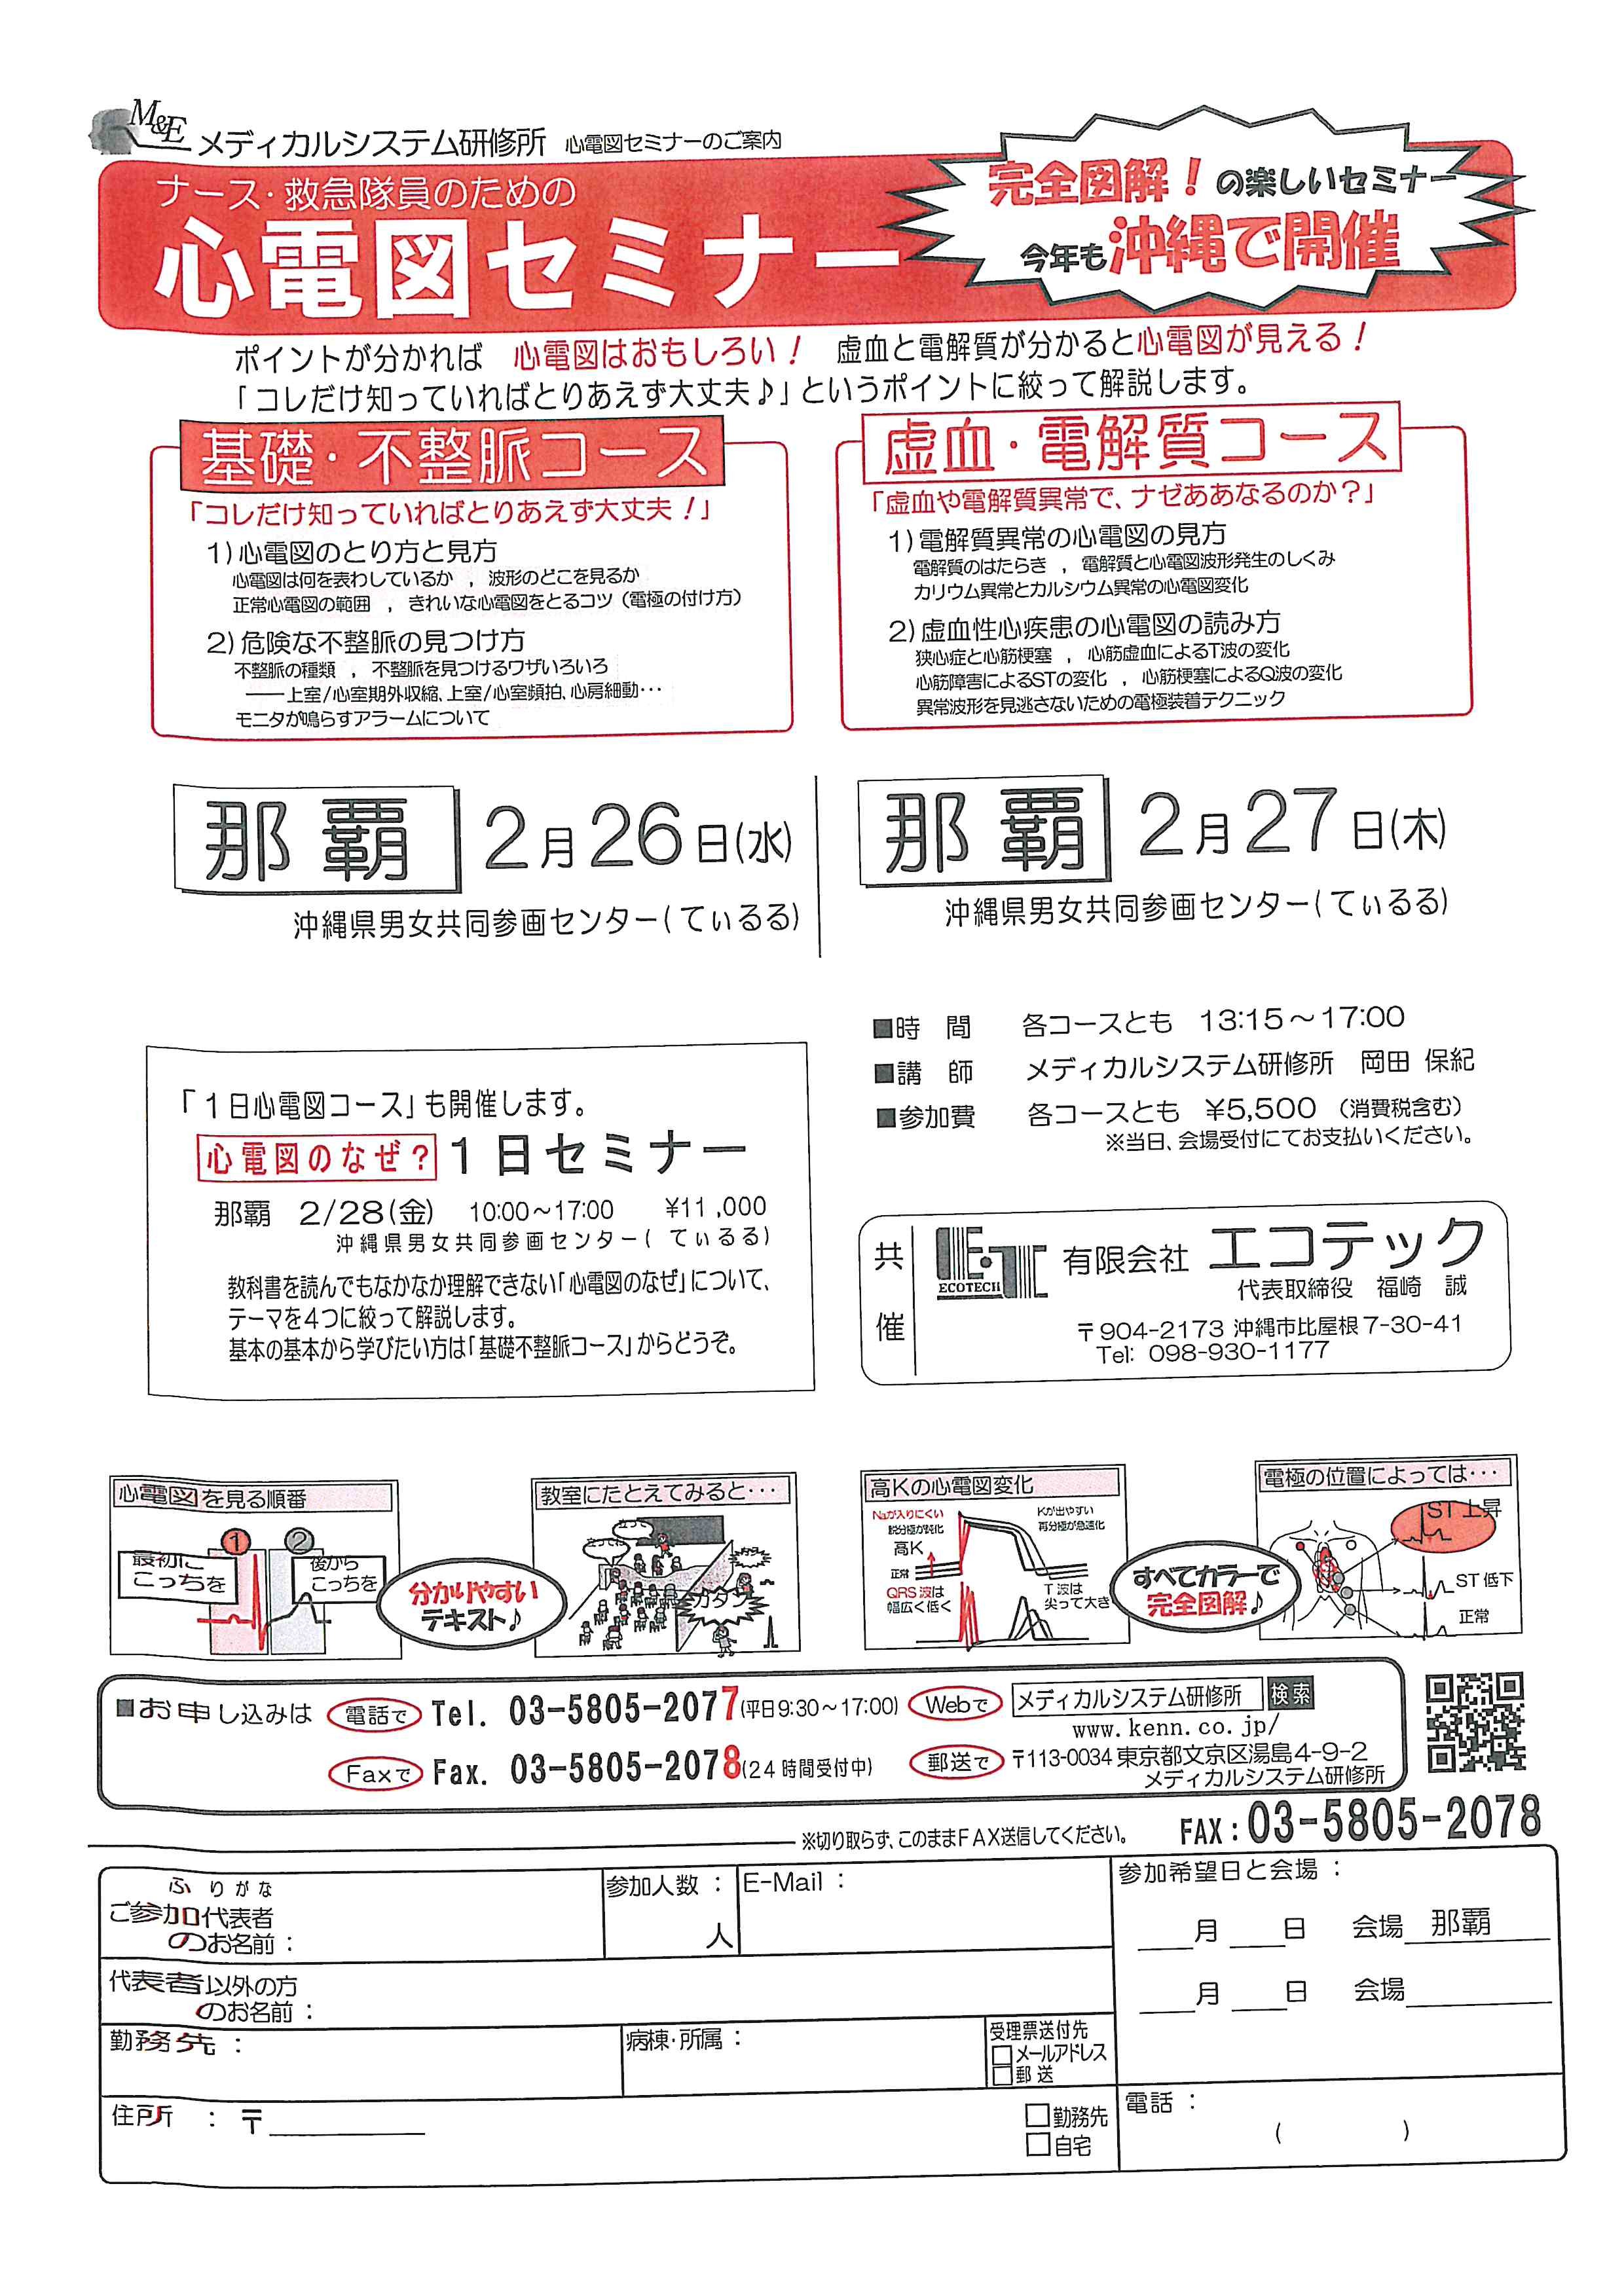 M&E メディカルシステム研修所 心電図セミナーのご案内
ナース・救急隊員のための
心電図セミナー
完全図解！の楽しいセミナー
今年も沖縄で開催
ポイントが分かれば 心電図はおもしろい！ 虚血と電解質が分かると心電図が見える！
「コレだけ知っていればとりあえず大丈夫♪」というポイントに絞って解説します。
基礎・不整脈コース
「コレだけ知っていればとりあえず大丈夫！」
1)心電図のとり方と見方
心電図は何を表わしているか ，波形のどこを見るか
正常心電図の範囲 ，きれいな心電図をとるコツ（電極の付け方）
2)危険な不整脈の見つけ方
不整脈の種類 ，不整脈を見つけるワザいろいろ
──上室/心室期外収縮、上室/心室頻拍、心房細動･･･
モニタが鳴らすアラームについて
虚血・電解質コース
「虚血や電解質異常で、ナゼああなるのか？」
1)電解質異常の心電図の見方
電解質のはたらき ，電解質と心電図波形発生のしくみ
カリウム異常とカルシウム異常の心電図変化
2)虚血性心疾患の心電図の読み方
狭心症と心筋梗塞 ，心筋虚血によるT波の変化
心筋障害によるSTの変化 ，心筋梗塞によるQ波の変化
異常波形を見逃さないための電極装着テクニック
那覇 2月26日(水)
沖縄県男女共同参画センター(てぃるる)
那覇 2月27日(木)
沖縄県男女共同参画センター(てぃるる)
■時 間 各コースとも 13:15～17:00
■講 師 メディカルシステム研修所 岡田 保紀
■参加費 各コースとも ¥5,500 （消費税含む）
※当日、会場受付にてお支払いください。
「1日心電図コース」も開催します。
心電図のなぜ？ 1日セミナー
那覇 2/28(金) 10:00～17:00 ¥11,000
沖縄県男女共同参画センター(てぃるる)
教科書を読んでもなかなか理解できない「心電図のなぜ」について、
テーマを4つに絞って解説します。
基本の基本から学びたい方は「基礎不整脈コース」からどうぞ。
共催
ECOTECH
有限会社 エコテック
代表取締役 福崎 誠
〒904-2173 沖縄市比屋根7-30-41
Tel: 098-930-1177
心電図を見る順番
① ②
最初に
こっちを
後から
こっちを
分かりやすい
テキスト♪
教室にたとえてみると･･･
ガタン
高Kの心電図変化
Naが入りにくい
脱分極が鈍化
Kが出やすい
再分極が急速化
高K
正常
QRS波は
幅広く低く
T波は
尖って大き
すべてカラーで
完全図解♪
電極の位置によっては･･･
ST上昇
ST低下
正常
■お申し込みは 電話で Tel. 03-5805-2077(平日9:30～17:00) Webで メディカルシステム研修所 検索
www.kenn.co.jp/
Faxで Fax. 03-5805-2078(24時間受付中) 郵送で 〒113-0034 東京都文京区湯島4-9-2
メディカルシステム研修所
※切り取らず、このままFAX送信してください。 FAX：03-5805-2078
ふりがな
ご参加代表者
のお名前：
参加人数：
人
E-Mail：
参加希望日と会場：
月 日 会場 那覇
月 日 会場
代表者以外の方
のお名前：
勤務先：
病棟・所属：
受理票送付先
□メールアドレス
□郵送
住所 ：〒
□勤務先
□自宅
電話：
( )